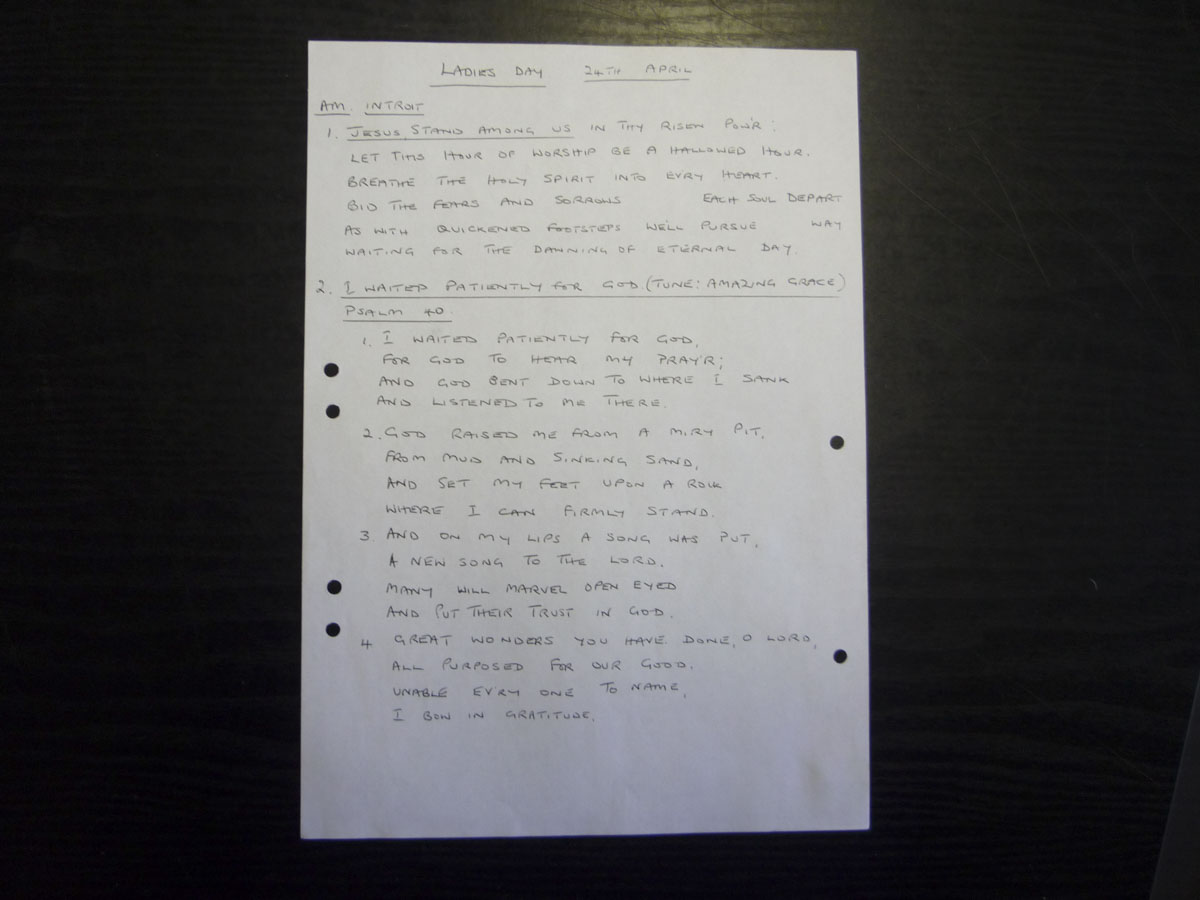 LADIES DAY 24TH APRIL
AM. INTROIT
1. JESUS, STAND AMONG US IN THY RISEN POW'R:
LET THIS HOUR OF WORSHIP BE A HALLOWED HOUR.
BREATHE THE HOLY SPIRIT INTO EV'RY HEART.
BID THE FEARS AND SORROWS EACH SOUL DEPART
AS WITH QUICKENED FOOTSTEPS WE'LL PURSUE WAY
WAITING FOR THE DAWNING OF ETERNAL DAY.
2. I WAITED PATIENTLY FOR GOD. (TUNE: AMAZING GRACE)
PSALM 40.
1. I WAITED PATIENTLY FOR GOD,
FOR GOD TO HEAR MY PRAY'R;
AND GOD BENT DOWN TO WHERE I SANK
AND LISTENED TO ME THERE.
2. GOD RAISED ME FROM A MIRY PIT,
FROM MUD AND SINKING SAND,
AND SET MY FEET UPON A ROCK
WHERE I CAN FIRMLY STAND.
3. AND ON MY LIPS A SONG WAS PUT,
A NEW SONG TO THE LORD.
MANY WILL MARVEL OPEN EYED
AND PUT THEIR TRUST IN GOD.
4 GREAT WONDERS YOU HAVE DONE, O LORD,
ALL PURPOSED FOR OUR GOOD.
UNABLE EV'RY ONE TO NAME,
I BOW IN GRATITUDE.